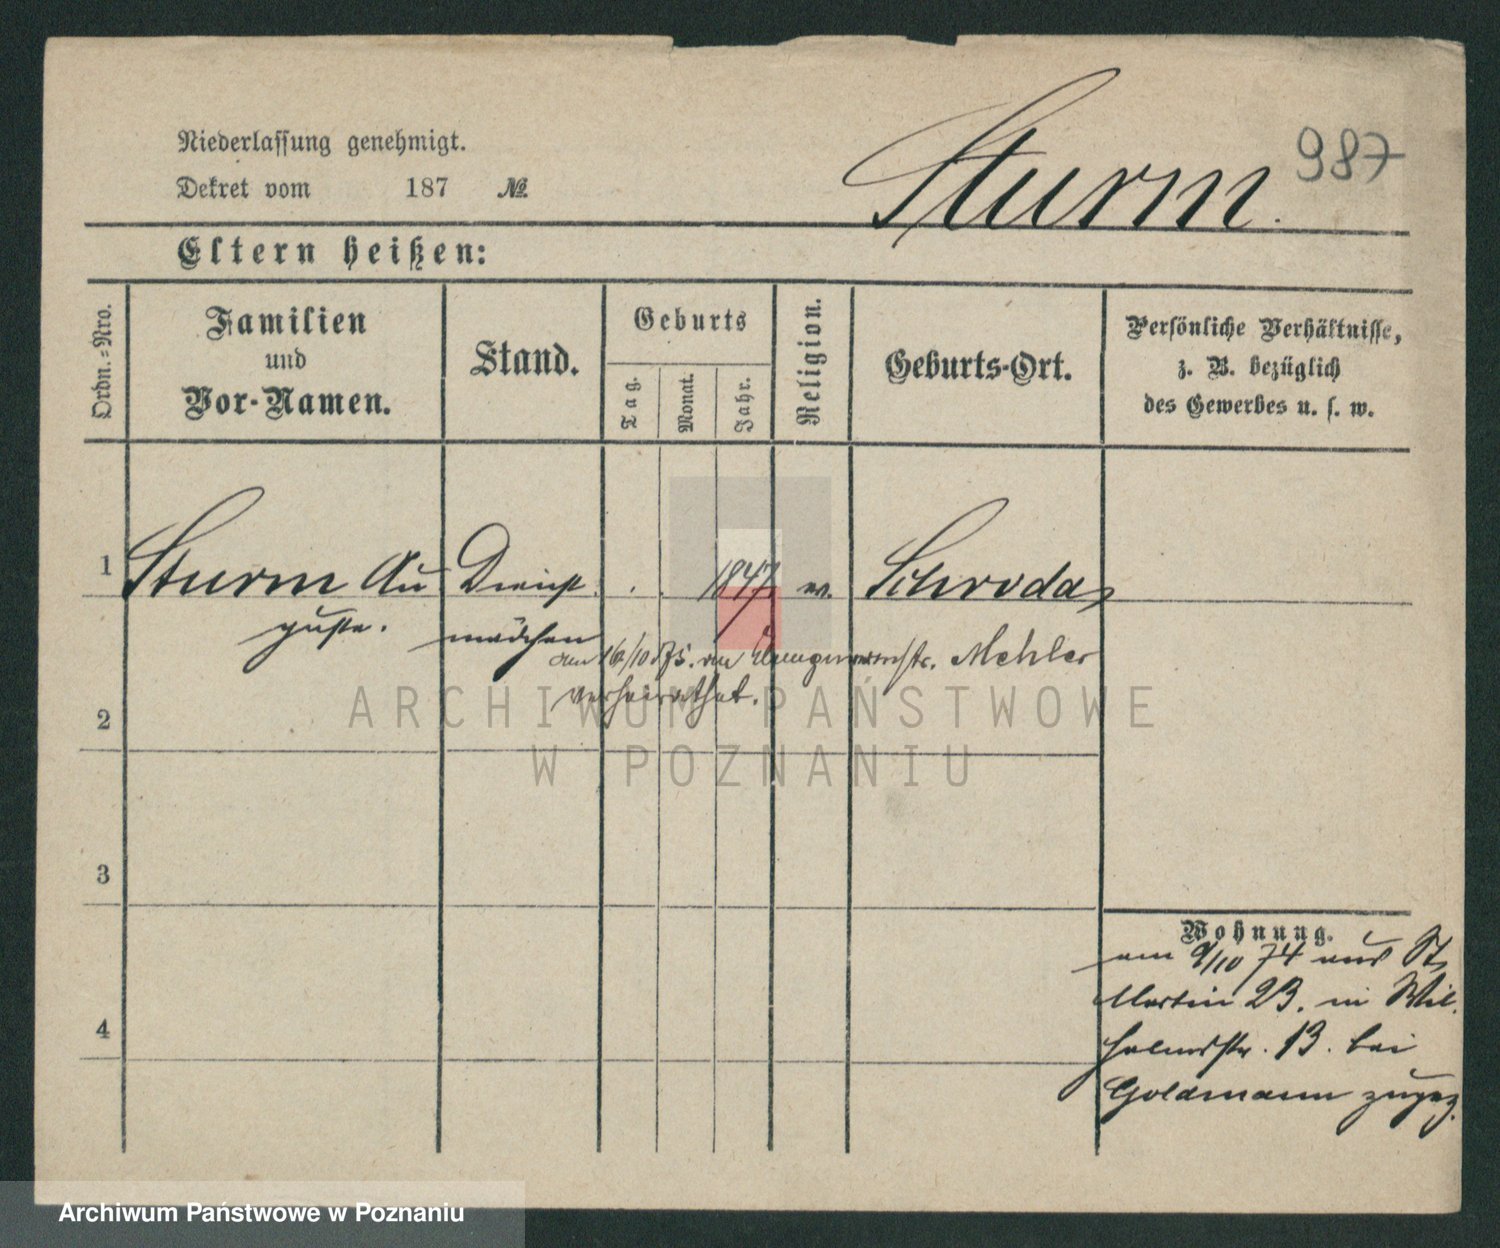 987
Sturm.
Niederlassung genehmigt.
Dekret vom 187 №
Eltern heißen:
Ordn.-Nro.
Familien
und
Vor-Namen.
Stand.
Geburts
Tag.
Monat.
Jahr.
Religion.
Geburts-Ort.
Persönliche Verhältnisse,
z. B. bezüglich
des Gewerbes u. s. w.
1 Sturm Au Dienst 1847 Schroda
guste. mädchen
am /10 75. an Mehler
verheirathet.
2
3
4
Wohnung.
am 9/10 74 aus St.
Martin 23. in Wil
helmstr. 13. bei
Goldmann zugez.
ARCHIWUM PAŃSTWOWE
W POZNANIU
Archiwum Państwowe w Poznaniu